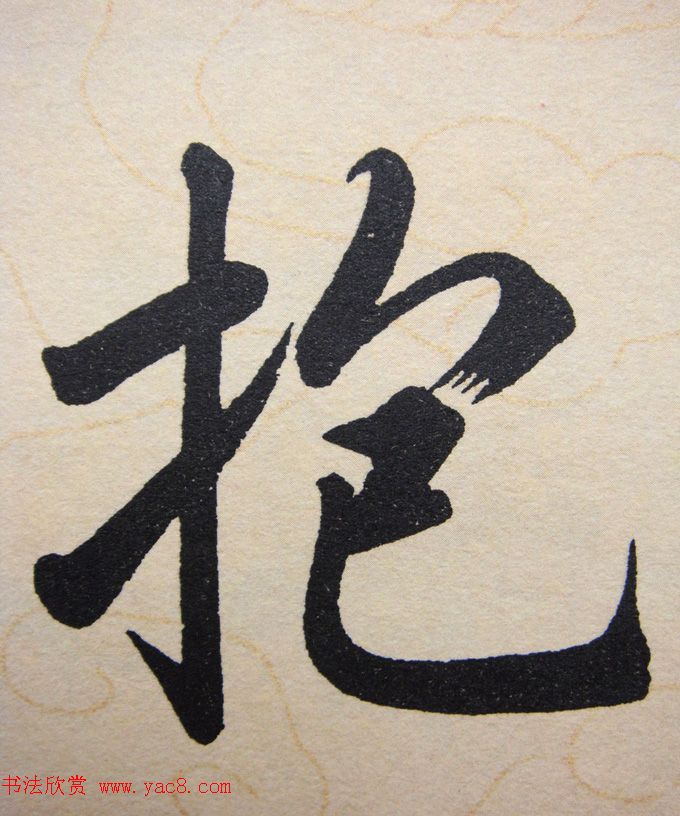 抱
书法欣赏 www.yac8.com